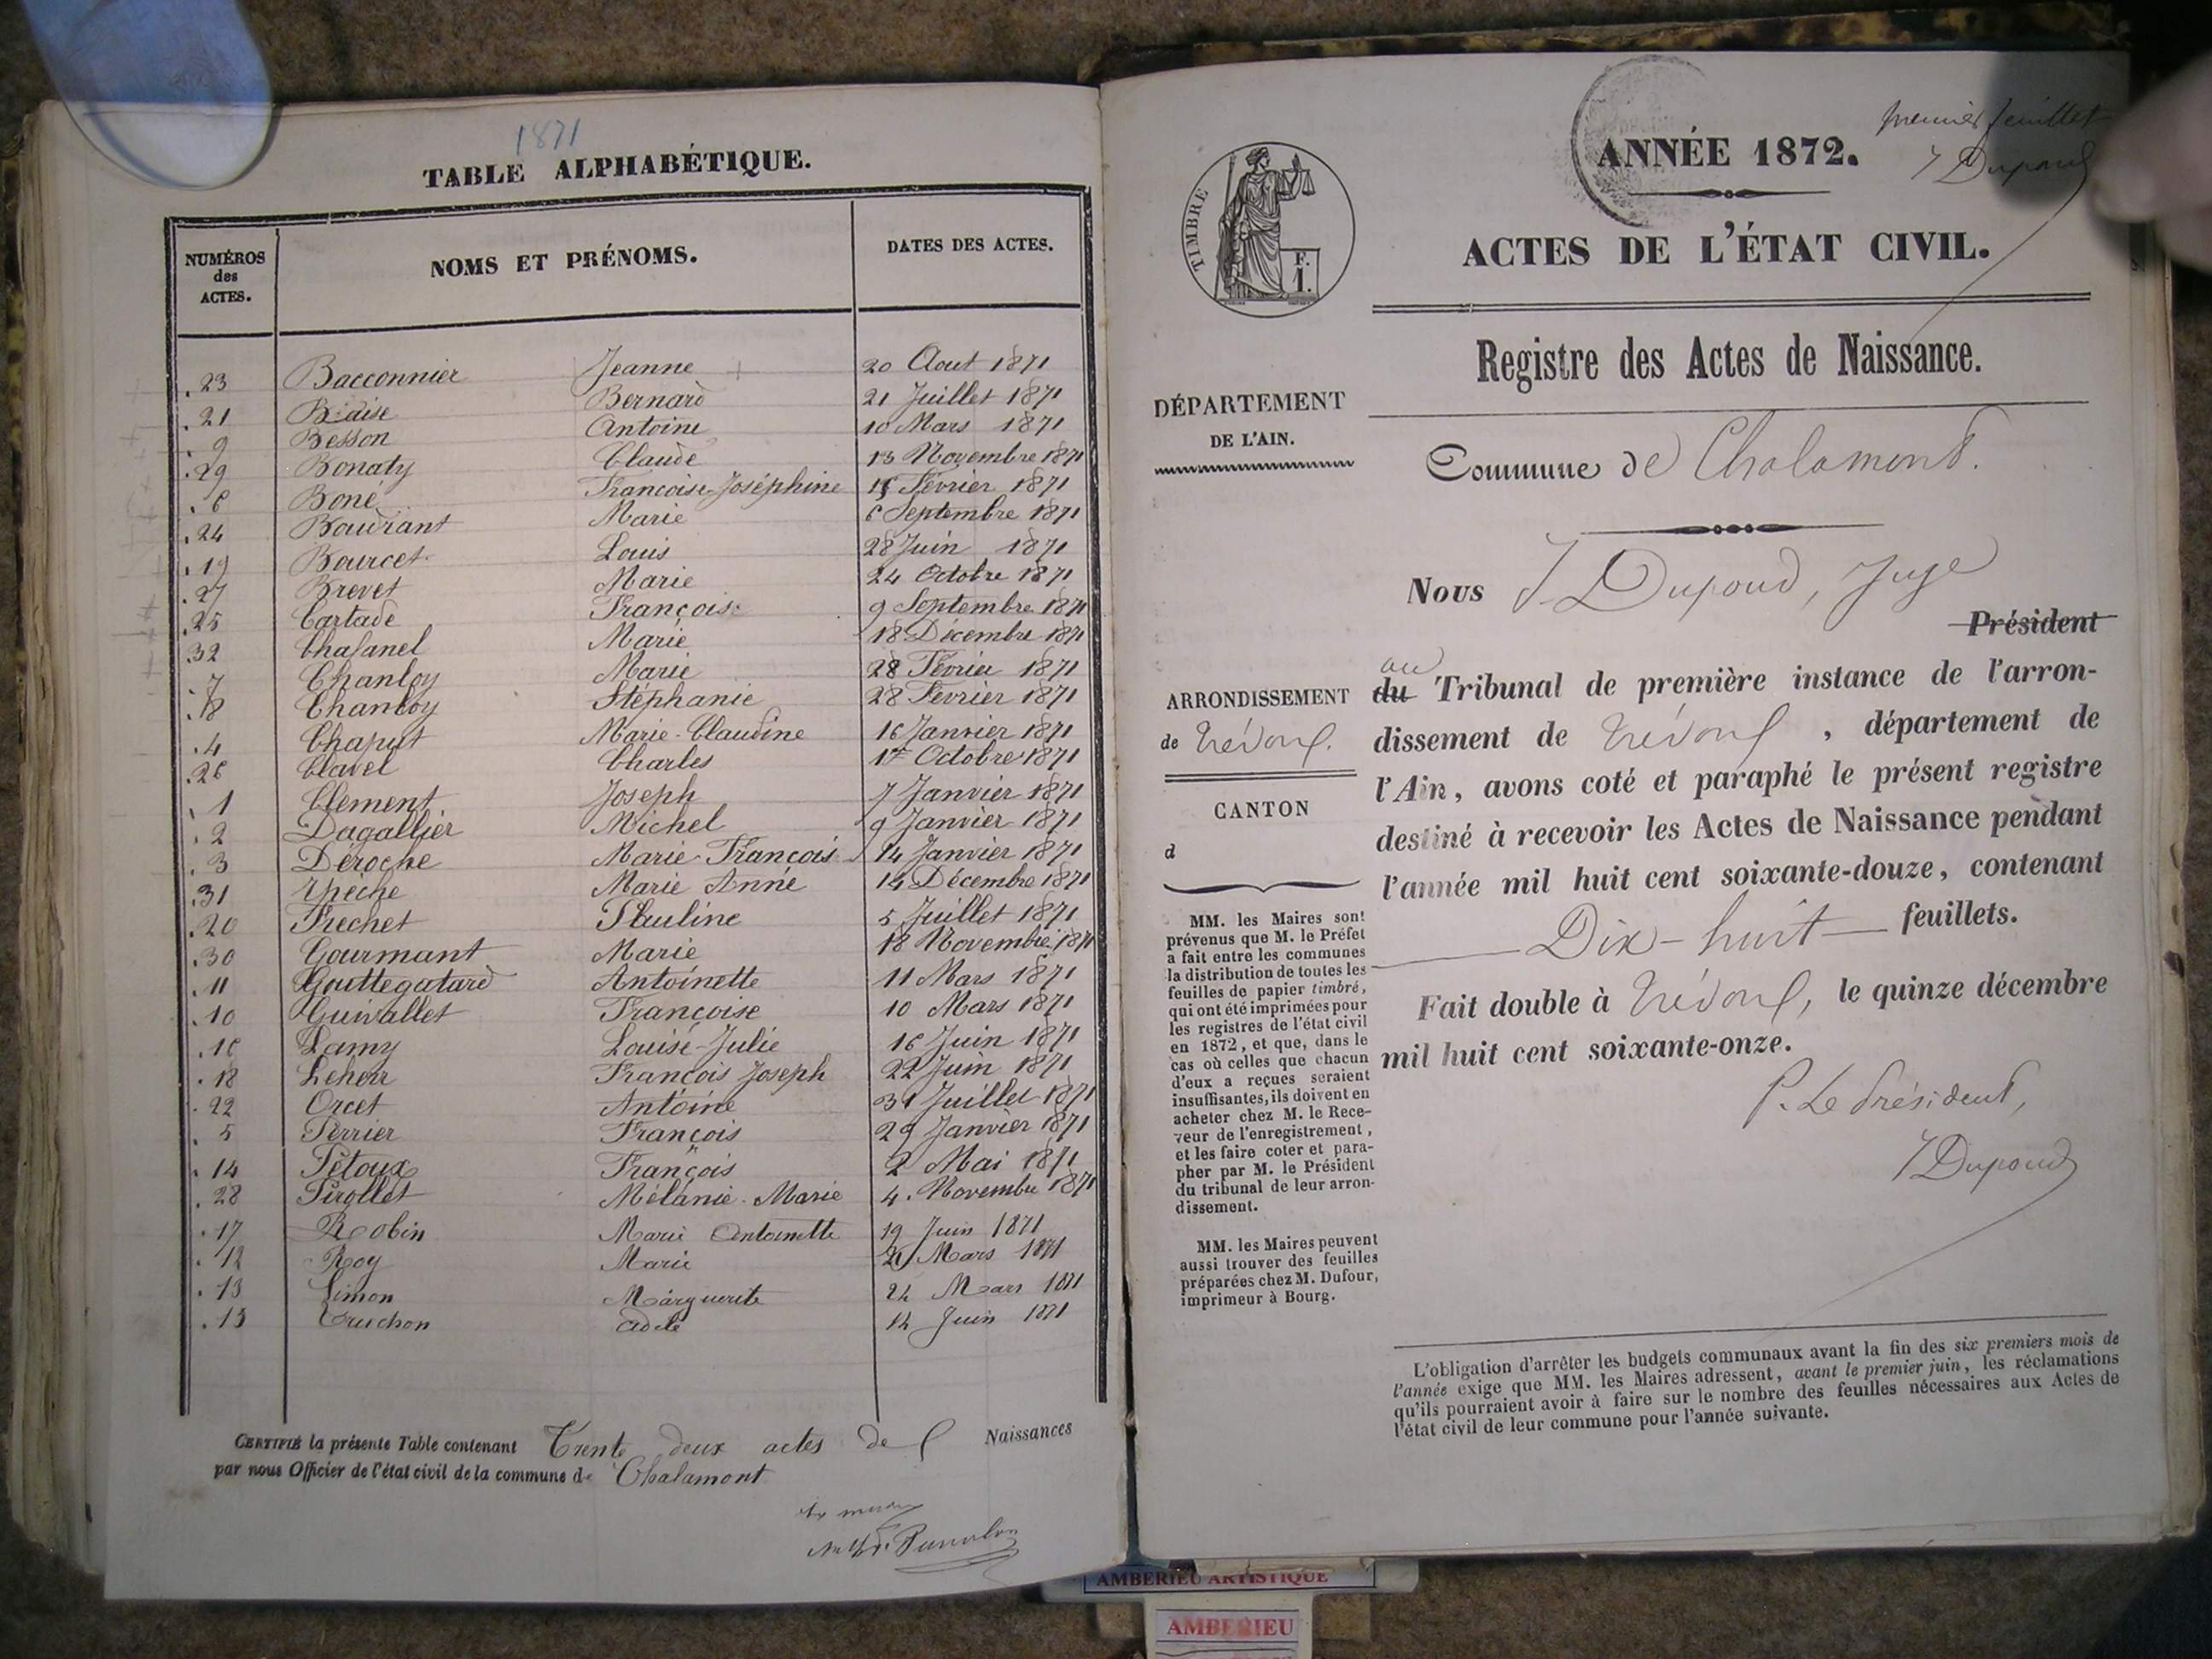 1871
TABLE ALPHABÉTIQUE.
NUMÉROS des ACTES. NOMS ET PRÉNOMS. DATES DES ACTES.
23 Bacconnier Jeanne 20 Aout 1871
21 Blaise Bernard 21 Juillet 1871
9 Besson Antoine 10 Mars 1871
29 Bonaty Claude 13 Novembre 1871
6 Boné Françoise-Joséphine 15 Février 1871
24 Boudrant Marie 6 Septembre 1871
19 Bourcet Louis 28 Juin 1871
27 Brevet Marie 24 Octobre 1871
25 Cartade François 9 Septembre 1871
32 Chafanel Marie 18 Décembre 1871
7 Chanloy Marie 28 Février 1871
8 Chanloy Stéphanie 28 Fevrier 1871
4 Chaput Marie-Claudine 16 Janvier 1871
26 Clavel Charles 17 Octobre 1871
1 Clement Joseph 7 Janvier 1871
2 Dagallier Michel 9 Janvier 1871
3 Deroche Marie François 14 Janvier 1871
31 Marie Anne 14 Décembre 1871
20 Frechet Pauline 5 Juillet 1871
30 Gourmant Marie 18 Novembre 1871
11 Gouttegatard Antoinette 11 Mars 1871
10 Guivallet Françoise 10 Mars 1871
16 Lamy Louise-Julie 16 Juin 1871
18 François Joseph 22 Juin 1871
22 Orcet Antoine 31 Juillet 1871
5 Perrier François 29 Janvier 1871
14 Pétoux François 2 Mai 1871
28 Pirollet Mélanie-Marie 4 Novembre 1871
17 Robin Marie Antoinette 19 Juin 1871
12 Roy Marie Mars 1871
13 Simon Marguerite 24 Mars 1871
15 Truchon Adele 14 Juin 1871
CERTIFIÉ la présente Table contenant Trente deux actes de Naissances
par nous Officier de l'état civil de la commune de Chalamont
premier feuillet
J Dupoud
ANNÉE 1872.
TIMBRE
F.
1.
ACTES DE L'ÉTAT CIVIL.
Registre des Actes de Naissance.
DÉPARTEMENT
DE L'AIN.
Commune de Chalamont.
Nous J. Dupoud, Juge
Président
au
du Tribunal de première instance de l'arron-
dissement de Trévoux, département de
l'Ain, avons coté et paraphé le présent registre
destiné à recevoir les Actes de Naissance pendant
l'année mil huit cent soixante-douze, contenant
Dix-huit feuillets.
Fait double à Trévoux, le quinze décembre
mil huit cent soixante-onze.
P. Le Président,
J Dupoud
ARRONDISSEMENT
de Trévoux.
CANTON
d
MM. les Maires sont
prévenus que M. le Préfet
a fait entre les communes
la distribution de toutes les
feuilles de papier timbré,
qui ont été imprimées pour
les registres de l'état civil
en 1872, et que, dans le
cas où celles que chacun
d'eux a reçues seraient
insuffisantes, ils doivent en
acheter chez M. le Rece-
veur de l'enregistrement,
et les faire coter et para-
pher par M. le Président
du tribunal de leur arron-
dissement.
MM. les Maires peuvent
aussi trouver des feuilles
préparées chez M. Dufour,
imprimeur à Bourg.
L'obligation d'arrêter les budgets communaux avant la fin des six premiers mois de
l'année exige que MM. les Maires adressent, avant le premier juin, les réclamations
qu'ils pourraient avoir à faire sur le nombre des feuilles nécessaires aux Actes de
l'état civil de leur commune pour l'année suivante.
AMBERIEU ARTISTIQUE
AMBERIEU